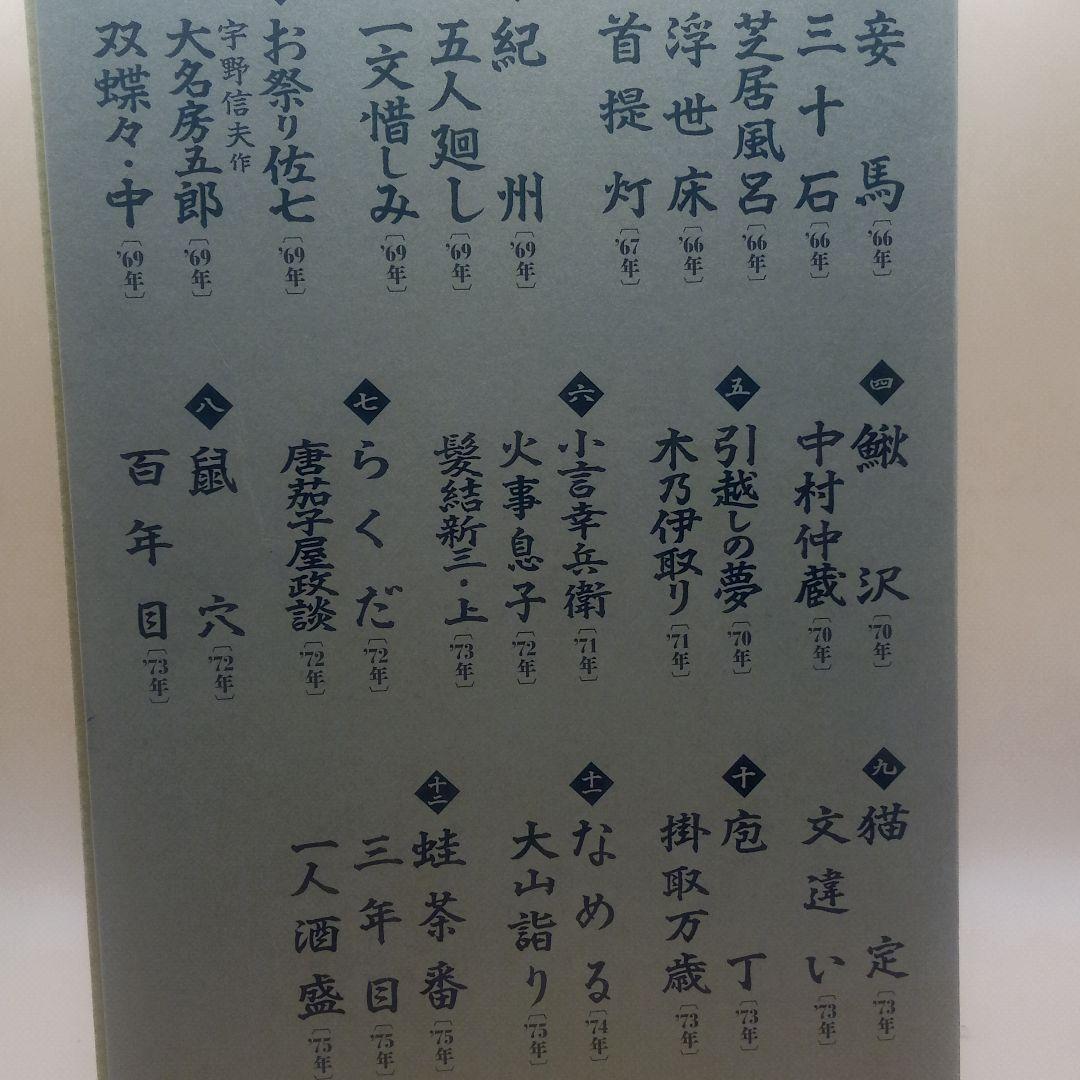 妾馬〔'66年〕
三十石〔'66年〕
芝居風呂〔'66年〕
浮世床〔'66年〕
首提灯〔'67年〕
紀州〔'69年〕
五人廻し〔'69年〕
一文惜しみ〔'69年〕
お祭り佐七〔'69年〕
宇野信夫作
大名房五郎〔'69年〕
双蝶々・中〔'69年〕
四
鰍沢〔'70年〕
中村仲蔵〔'70年〕
五
引越しの夢〔'70年〕
木乃伊取り〔'71年〕
六
小言幸兵衛〔'71年〕
火事息子〔'72年〕
髪結新三・上〔'73年〕
七
らくだ〔'72年〕
唐茄子屋政談〔'72年〕
八
鼠穴〔'72年〕
百年目〔'73年〕
九
猫定〔'73年〕
文違い〔'73年〕
十
庖丁〔'73年〕
掛取万歳〔'73年〕
十一
なめる〔'74年〕
大山詣り〔'75年〕
十二
蛙茶番〔'75年〕
三年目〔'75年〕
一人酒盛〔'75年〕